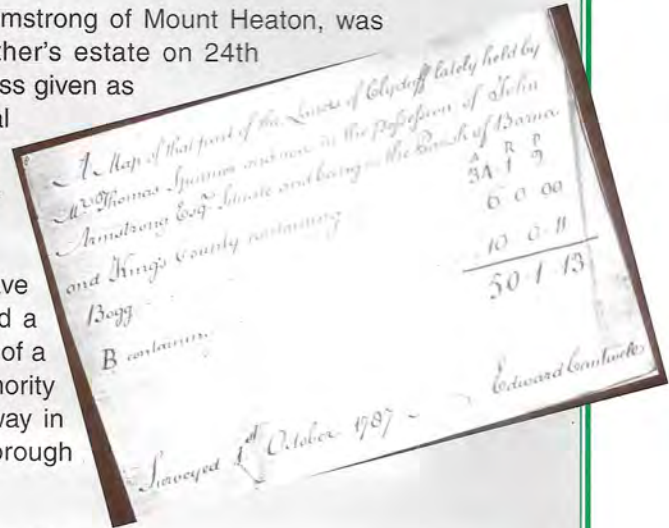 mstrong of Mount Heaton, was
ther's estate on 24th
ss given as
al
ve
d a
of a
hority
way in
orough
A Map of that part of the Lands of Clyduff lately held by
Mr Thomas Spunner and now in the possession of John
Armstrong Esqr. Situate and being in the Parish of Barna
and King's County containing
A R P
34 1 2
Bogg 6 0 00
B containing 10 0 11
50 1 13
Surveyed 1st October 1787 Edward Cantwell